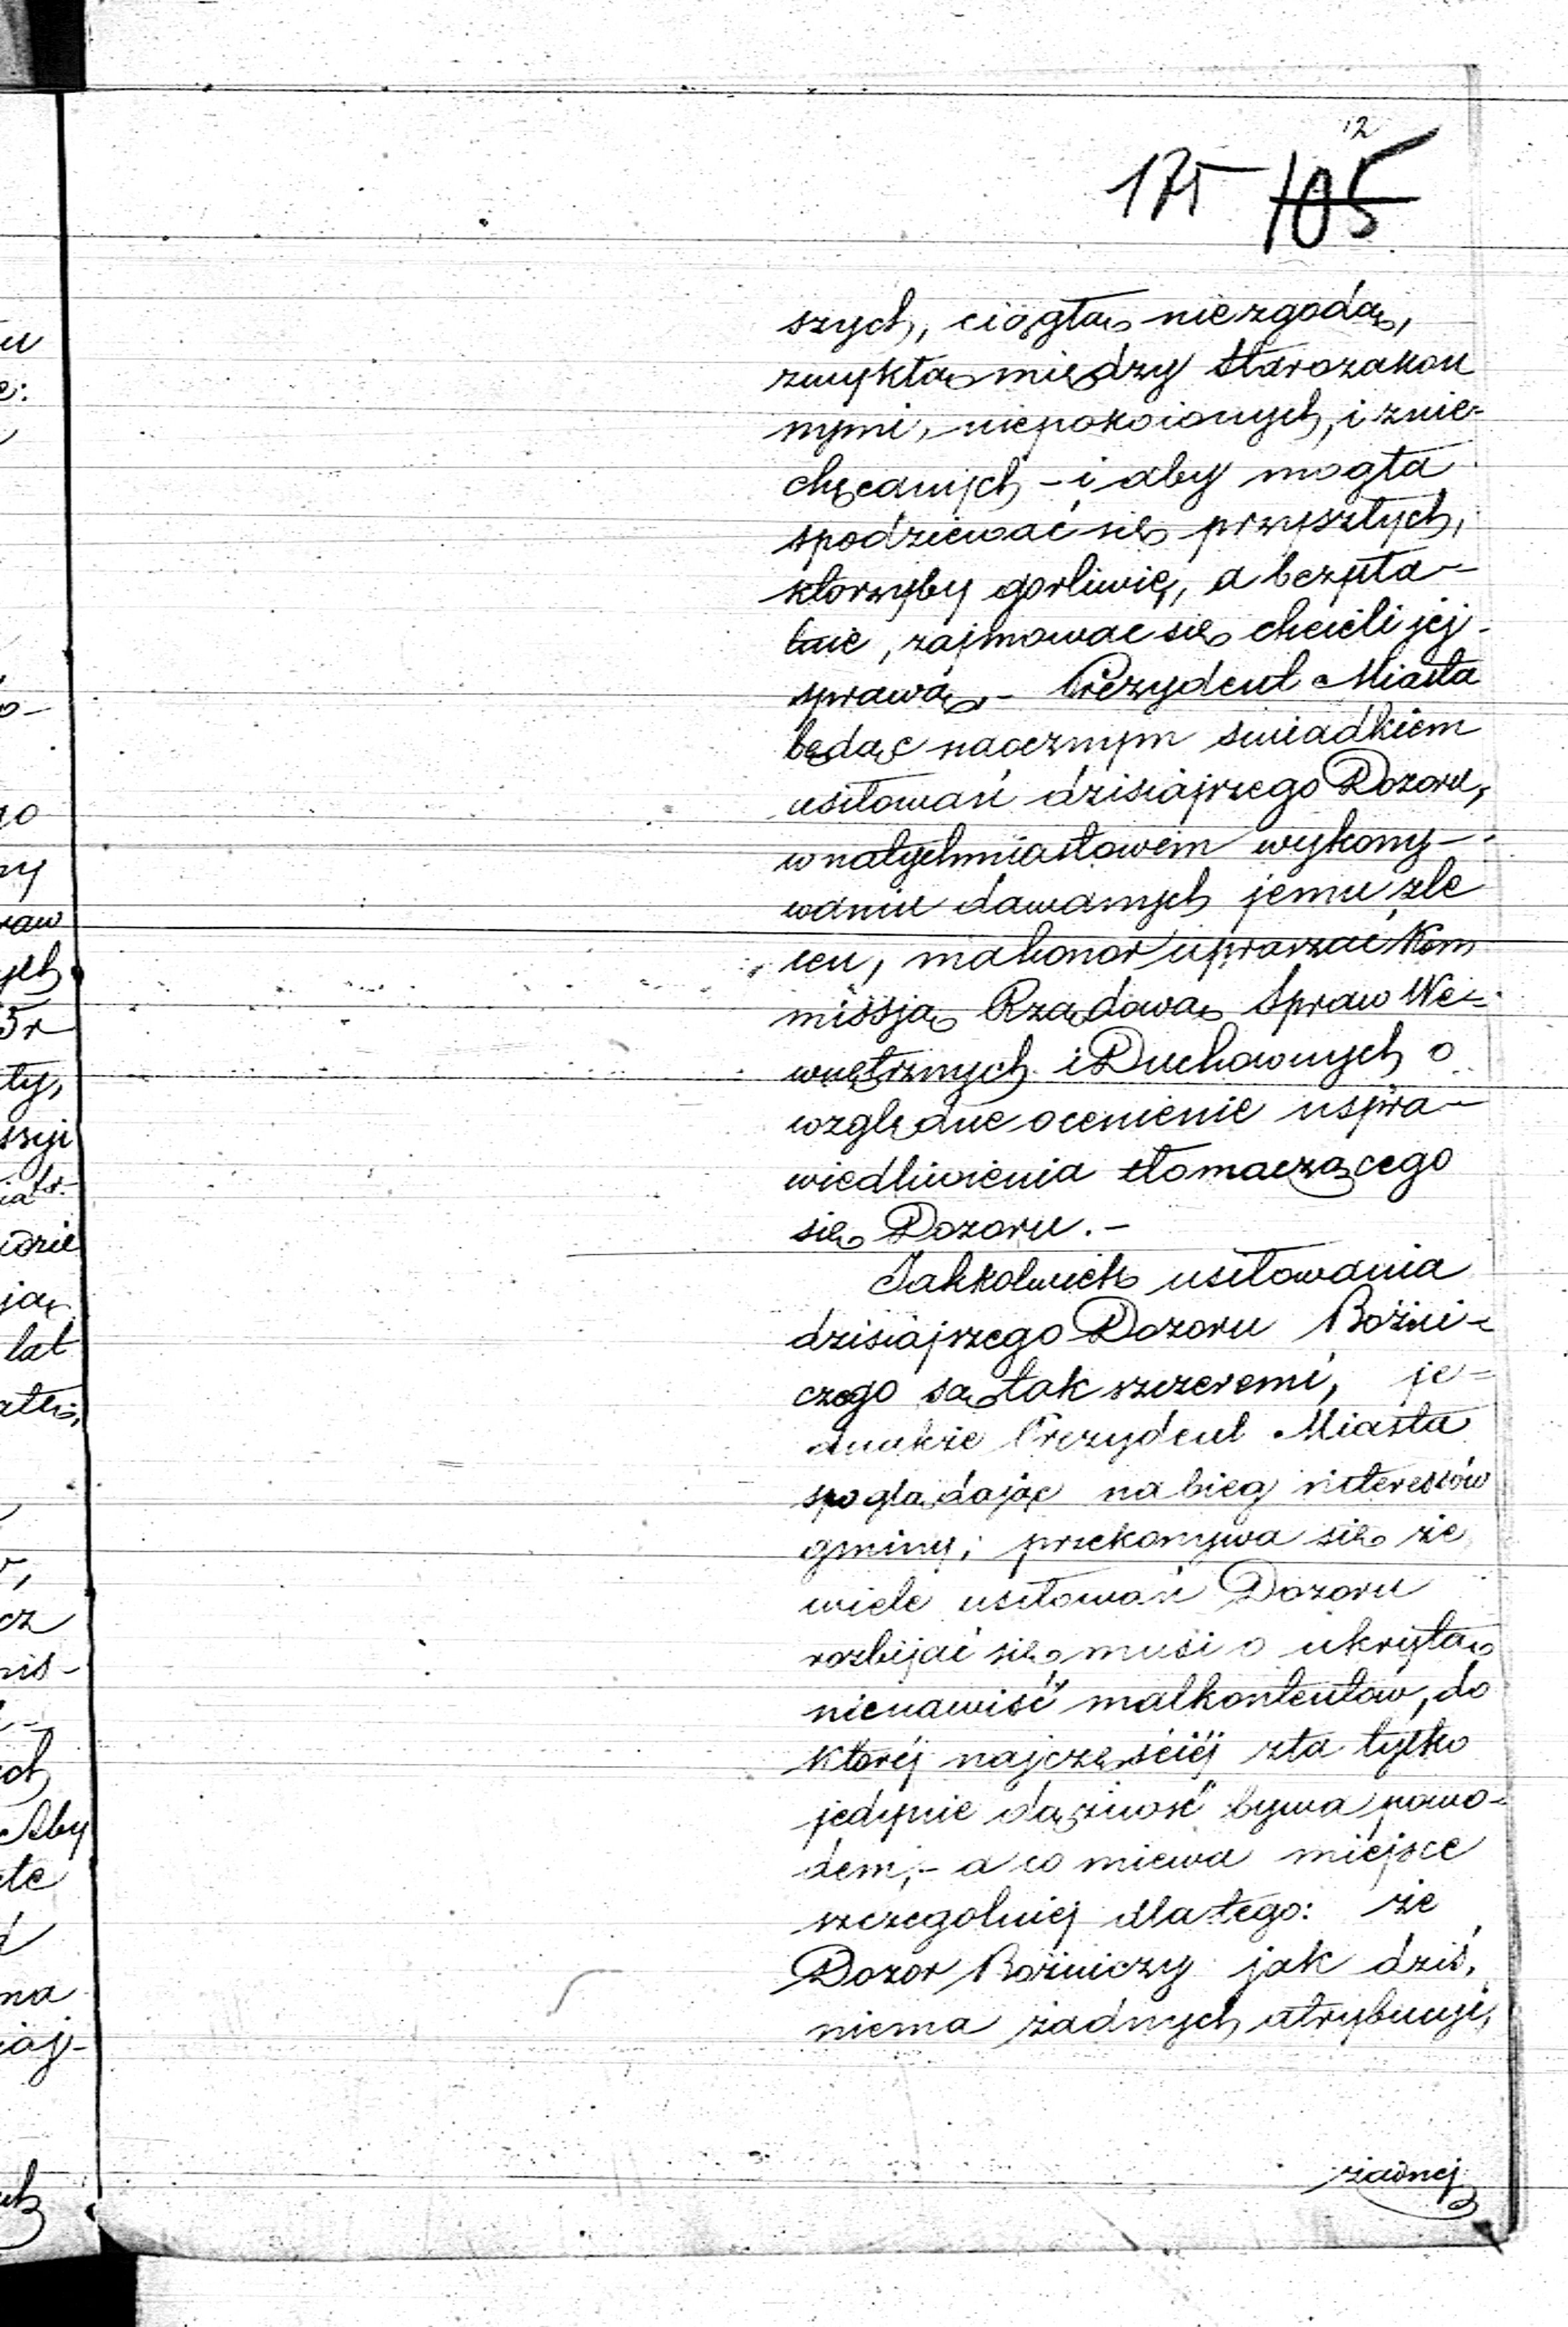 12
175 105
szych, ciągłą niezgodą,
zwykłą między Starozakon
nymi, niepokoionych, i znie-
chęcanych - i aby mogła
spodziewać się przyszłych,
ktorzyby gorliwie, a bezpła-
tnie, zajmować się chcieli jej
sprawą. - Prezydent Miasta
będąc naocznym świadkiem
usiłowań dzisiajszego Dozoru,
w natychmiastowem wykony-
waniu dawanych jemu zle
ceń, ma honor upraszać Kom
missją Rządową Spraw We-
wnętrznych i Duchownych o
względne ocenienie uspra-
wiedliwienia tłomaczącego
się Dozoru. -
Jakkolwiek usiłowania
dzisiajszego Dozoru Bożni-
czego są tak szczeremi, je-
dnakże Prezydent Miasta
spoglądając na bieg interessów
gminy; przekonywa się że
wiele usiłowań Dozoru
rozbijać się musi o ukrytą
nienawiść malkontentów, do
której najczęściéj zła tylko
jedynie dążność bywa powo-
dem; - a co miewa miejsce
szczegolniej dla tego: że
Dozor Bożniczy jak dziś,
niema żadnych atrybucyi,
żadnej